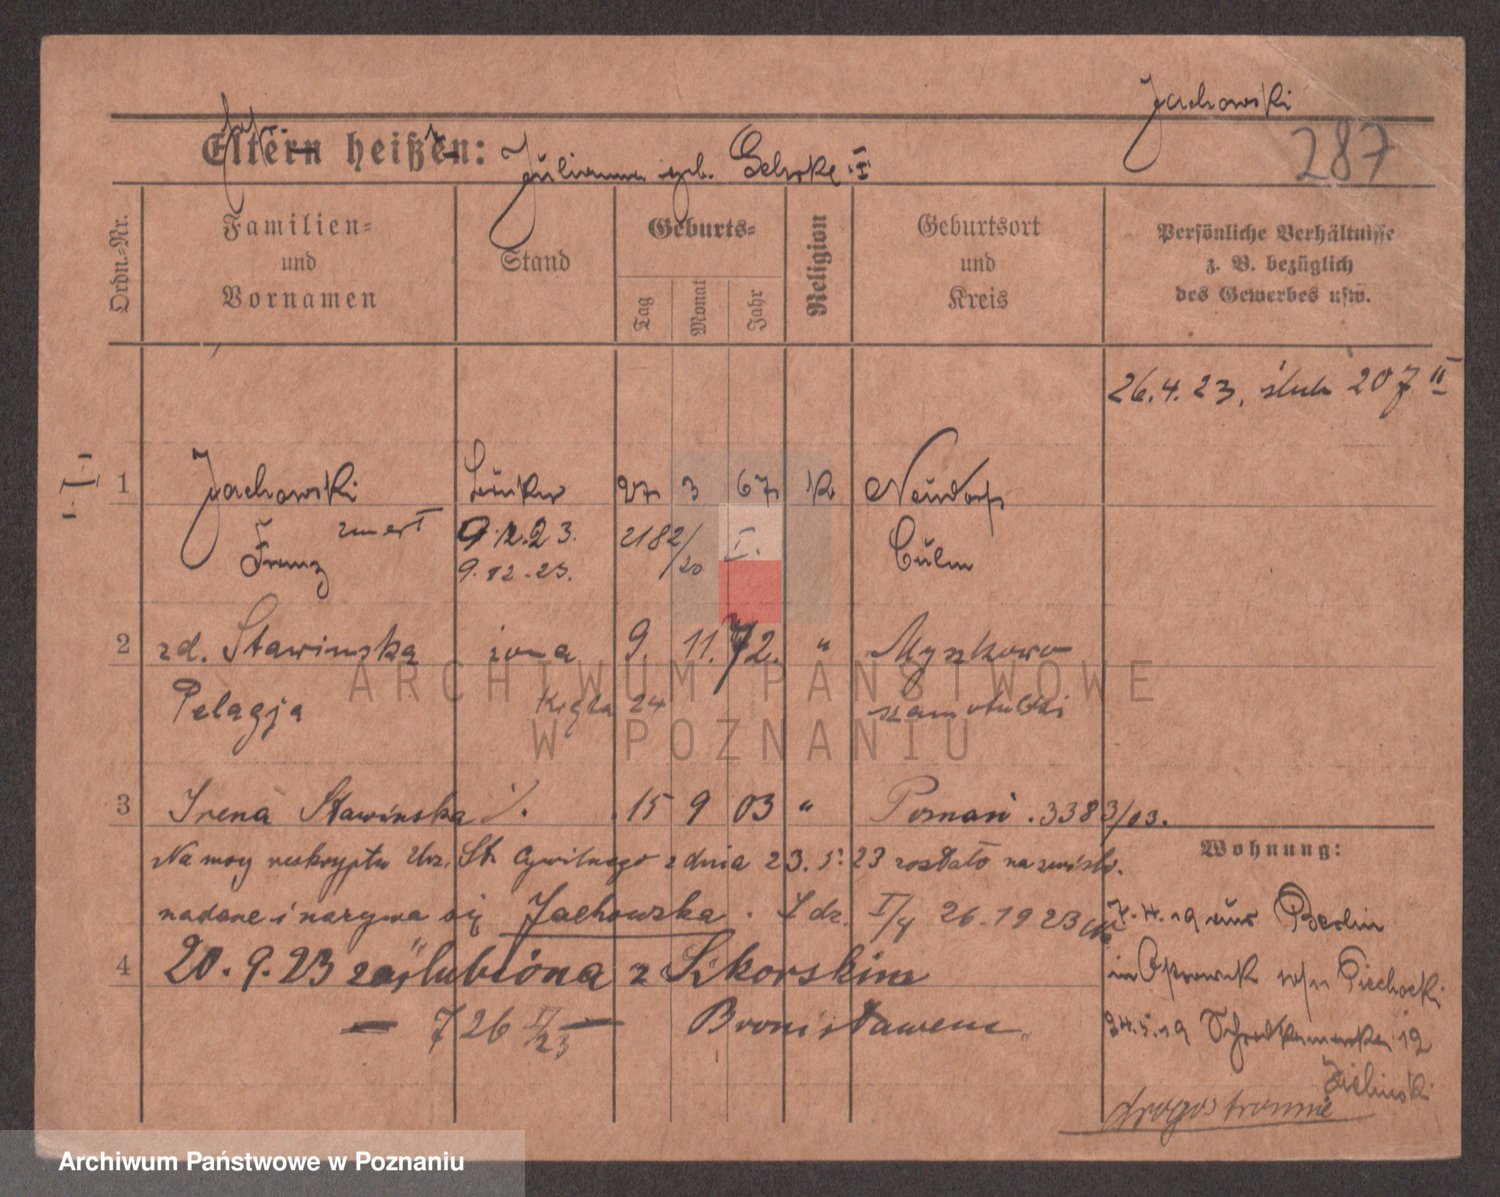 Jachowski
287
Eltern heißen: Julianna geb. Gehrke I
Ordn.-Nr.
Familien- und Vornamen
Stand
Geburts-
Tag
Monat
Jahr
Religion
Geburtsort und Kreis
Persönliche Verhältnisse z. B. bezüglich des Gewerbes usw.
26.4.23. ślub 207 II
I
1 Jachowski 27 3 67 k Neudorf
Franz zmarł 9.12.23. 2182/20 I. Culm
9.12.23.
2 zd. Stawinska żona 9. 11. 72. " Myszkowo
Pelagja 24 szamotulski
3 Irena Stawinska 15 9 03 " Poznań . 3383/03.
Na mocy reskryptu Urz. St. Cywilnego z dnia 23.5.23 zostało nazwisko
nadane i nazywa się Jachowska . L dz. I/4 26-1923
4 20.9.23 zaślubiona z Sikorskim
726 II/23 Bronisławem
Wohnung:
7.4.19 aus Berlin
in Ostrowek Piechocki
24.5.19 12
Zielinski
ARCHIWUM PAŃSTWOWE
W POZNANIU
Archiwum Państwowe w Poznaniu